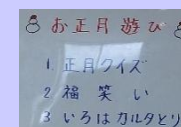 お正月遊び
1 正月クイズ
2 福笑い
3 いろはカルタとり